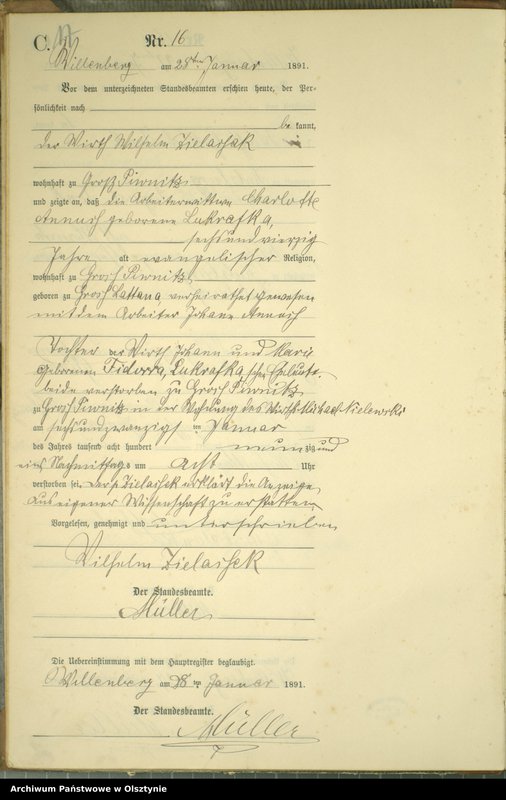 C. 17 Nr. 16
Willenberg am 28ten Januar 1891.
Vor dem unterzeichneten Standesbeamten erschien heute, der Per-
sönlichkeit nach
be kannt,
der Wirth Wilhelm Zielassek
wohnhaft zu Groß Piwnitz
und zeigte an, daß die Arbeiterwittwe Charlotte
Annuss geborene Lukrafka,
sechsundvierzig
Jahre alt evangelischer Religion,
wohnhaft zu Gross Piwnitz
geboren zu Gross Lattana verheirathet gewesen
mit dem Arbeiter Johann Annuss
Tochter der Wirth Johann und Marie
geborenen Fidorra, Lukrafka'schen Eheleute
beide verstorben zu Gross Piwnitz
zu Gross Piwnitz in der Wohnung des Wirths
am sechsundzwanzigsten Januar
des Jahres tausend acht hundert neunzig und
eins Nachmittags um acht Uhr
verstorben sei. Der p. Zielassek erklärt die Anzeige
aus eigener Wissenschaft zu erstatten
Vorgelesen, genehmigt und unterschrieben
Wilhelm Zielassek
Der Standesbeamte.
Müller
Die Uebereinstimmung mit dem Hauptregister beglaubigt.
Willenberg am 28 ten Januar 1891.
Der Standesbeamte.
Müller
Archiwum Państwowe w Olsztynie